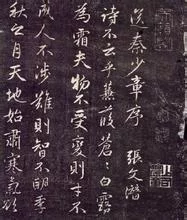 送秦少章序 張文潛
詩不云乎蒹葭蒼蒼白露
為霜夫物不受變則才不
成人不涉難則智不明季
秋之月天地始肅寒氣欲